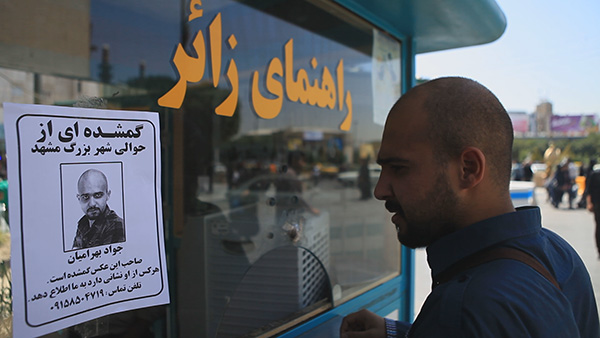 راهنمای زائر
گمشده ای از
حوالی شهر بزرگ مشهد
جواد بهرامیان
صاحب این عکس گمشده است.
هرکس از او نشانی دارد به ما اطلاع دهد
تلفن تماس : 09158504719